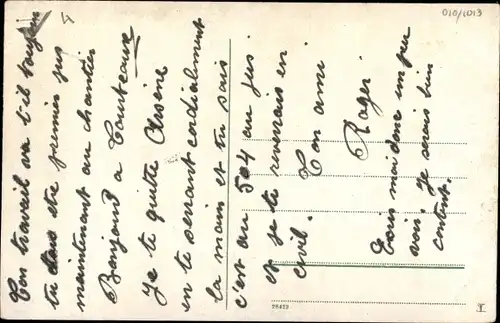 Ton travail va t-il toujours
tu dois etre premier jus
maintenant au chantier
Bonjour a Courteaux
Je te quitte Arsène
en te serrant cordialement
la main et tu sais
c'est au 504 au jus.
et je te reverrais en
civil.
Ton ami
Roger.
Ecris moi donc un peu
voir. Je serais bien
content.
010/1013
28423